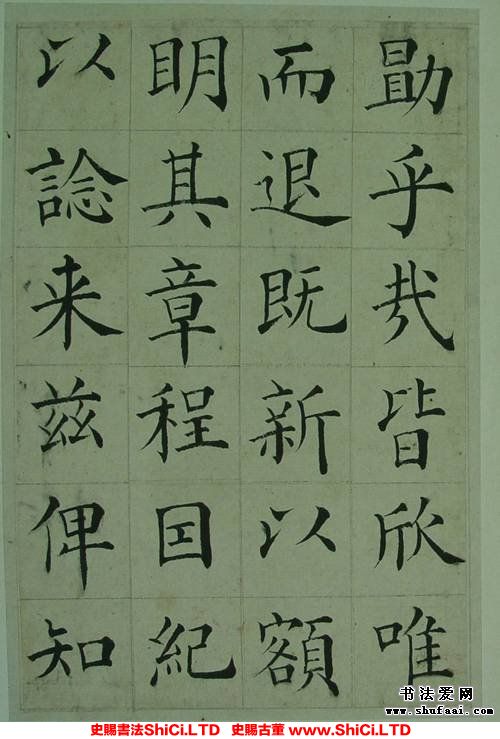 勗乎哉皆欣唯
而退既新以額
眀其章程囙紀
以諗来茲俾知
书法爱网
www.shufaai.com
史賜書法ShiCi.LTD 史賜古董 www.ShiCi.LTD